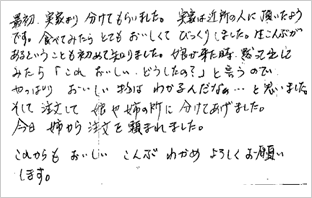 最初、実家より分けてもらいました。実家は近所の人に頂いたよう
です。食べてみたらとてもおいしくてびっくりしました。生こんぶが
あるということも初めて知りました。娘が来た時、黙って出して
みたら「これおいしい、どうしたの？」と言うので
やっぱりおいしい物はわかるんだなぁ…と思いました。
そして注文して娘や姉の所に分けてあげました。
今日姉から注文を頼まれました。
これからもおいしいこんぶわかめよろしくお願い
します。